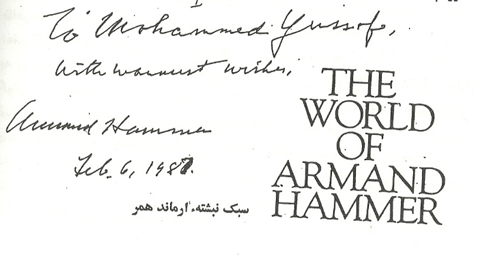 To Mohammed Yussof,
With warmest wishes,
Armand Hammer
Feb. 6, 1987.
THE
WORLD
OF
ARMAND
HAMMER
سبک نبشته، ارماند همر